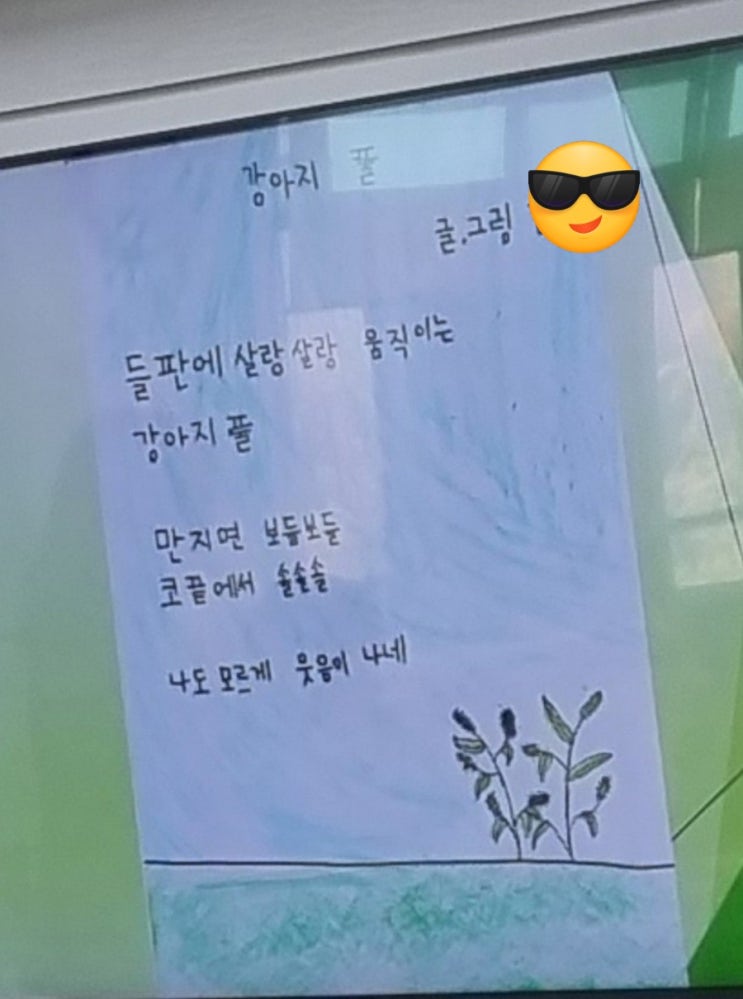 강아지 풀
글.그림
들판에 살랑살랑 움직이는
강아지 풀
만지면 보듬보듬
코끝에서 솔솔솔
나도 모르게 웃음이 나네